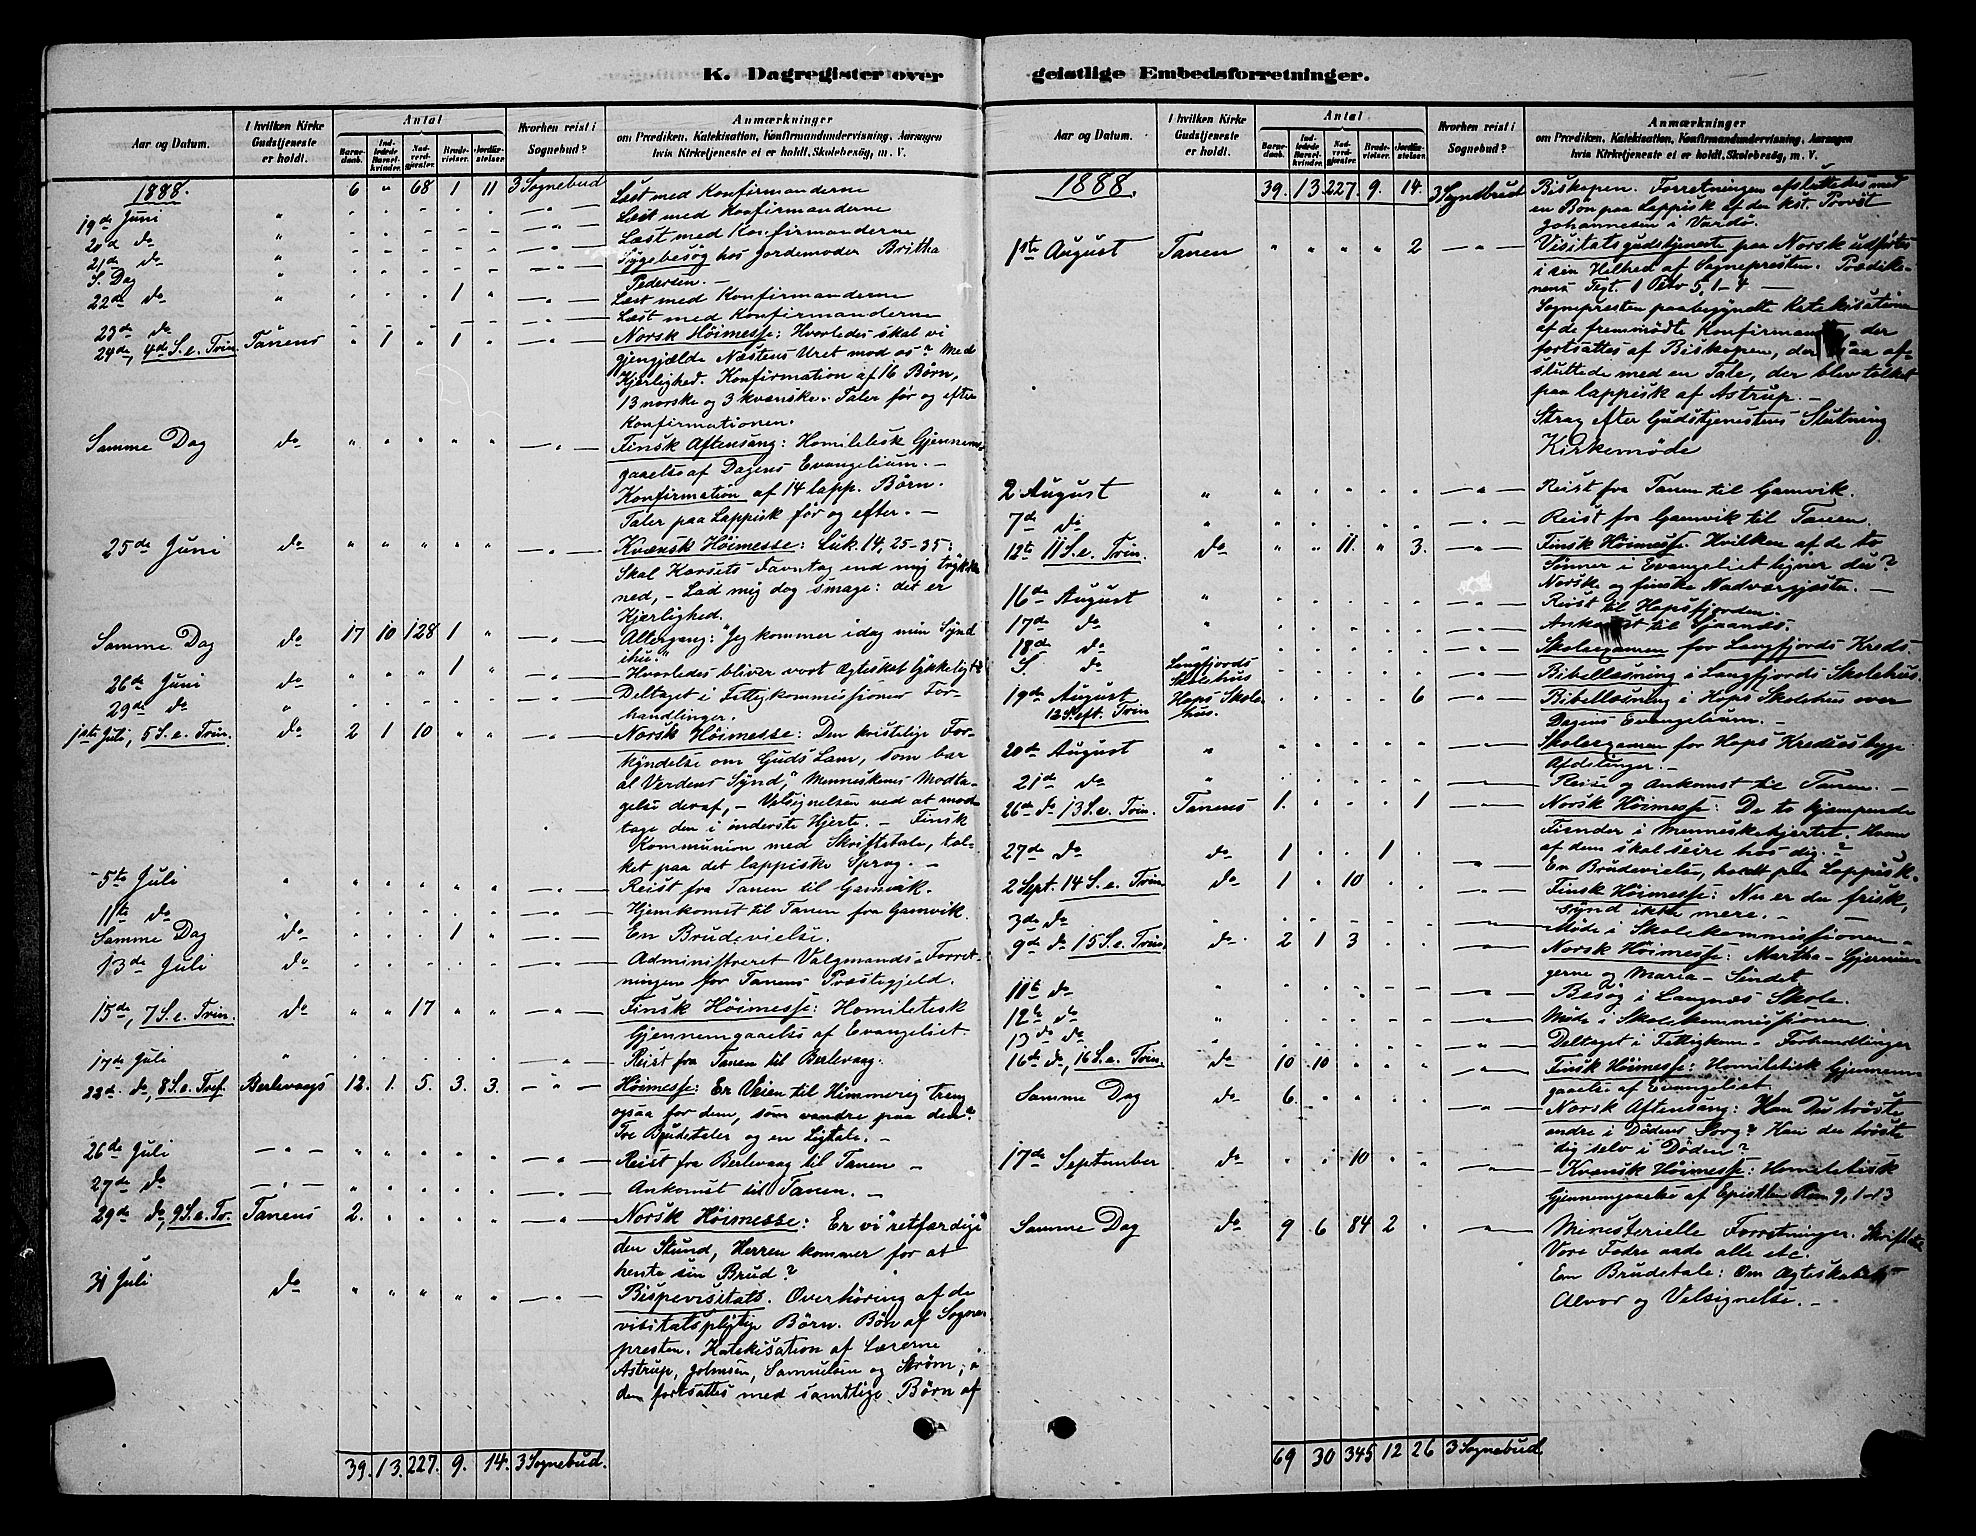 K. Dagregister over
Aar og Datum.
I hvilken Kirke Gudstjeneste er holdt.
Antal
Barnedaab.
Indledede Barselkvinder.
Nadverdgjester.
Brudevielser.
Jordfæstelser.
Hvorhen reist i Sognebud?
Anmærkninger
om Prædiken, Katekisation, Konfirmandundervisning, Aarsagen
hvis Kirketjeneste ei er holdt, Skolebesøg, m. V.
1888. 6 " 68 1 11 3 Sognebud Læst med Konfirmanderne
19de Juni " Læst med Konfirmanderne
20d do " Læst med Konfirmanderne
21de do " Sygebesøg hos Jordemoder Britha
S. Dag " Pedersen. —
22de do " 1 " Læst med Konfirmanderne
23de do Læst med Konfirmanderne
24de, 4de S. e. Trin. Tanens " 1 " 1 " Norsk Höimesse: Hvorledes skal vi
gjengjælde Næstens Uret mod os? Med
Kjerlighed. Konfirmation af 16 Börn,
13 norske og 3 kvænske. Taler før og efter
Konfirmationen.
Samme Dag do " " " " " — " — Finsk Aftensang: Homiletisk Gjennem-
gaaelse af Dagens Evangelium. —
Konfirmation af 14 lapp. Börn.
Taler paa Lappisk før og efter. —
25de Juni do " " " " " — " — Kvænsk Höimesse: Luk. 14, 25-35:
Skal Korsets Favntag end mig trykke
ned, — Lad mig dog smage: det er
Kjerlighed.
Samme Dag do 17 10 128 1 " — " — Altergang: "Jeg kommer idag min Synd
ihu."
26de Juni do " " " 1 " — " — Hvorledes bliver vort Ægteskab lykkeligt?
29de do " Deltaget i Fattigkommissionens For-
handlinger.
1ste Juli, 5 S. e. Trin. do 2 1 10 " " — " — Norsk Höimesse: Den kristelige For-
kyndelse om Guds Lam, som bar
al Verdens Synd, Menneskenes Modta-
gelse deraf, — Velsignelsen ved at mod-
tage den i inderste Hjerte. — Finsk
Kommunion med Skriftetale, tol-
ket paa det lappiske Sprog. —
5te Juli " " " " " " — " — Reist fra Tanen til Gamvik.
11te do " Hjemkomst til Tanen fra Gamvik.
Samme Dag do " " " 1 " — " — En Brudevielse.
13de Juli do — " — Administreret Valgmands-Forret-
ningen for Tanens Præstegjeld.
15de, 7 S. e. Trin. do " " 17 " " — " — Finsk Höimesse: Homiletisk
Gjennemgaaelse af Evangeliet.
17de Juli " — " Reist fra Tanen til Berlevaag.
22de do, 8 S. e. Tref. Berlevaags 12. 1. 5. 3. 3. — " — Höimesse: Er Veien til Himmerig trang
ogsaa for dem, som vandre paa den?
Tre Brudetaler og en Ligtale. —
26de Juli — " — " " " " " — " — Reist fra Berlevaag til Tanen —
27de do — " — " " " " " — " — Ankomst til Tanen. —
29de do, 9 S. e. Tr. Tanens 2. " " " " — " — Norsk Höimesse: Er vi "retfærdige"
den Stund, Herren kommer for at
hente sin Brud?
31 Juli do " " " " " — " — Bispevisitats. Overhöring af de
visitatspligtige Börn. Bön af Sogne-
presten. Katekisation af Lærerne
Astrup, Johnsen, Samuelsen og Ström;
den fortsattes med samtlige Börn af
39. 13. 227. 9. 14. 3 Sognebud.
geistlige Embedsforretninger.
Aar og Datum.
I hvilken Kirke Gudstjeneste er holdt.
Antal
Barnedaab.
Indledede Barselkvinder.
Nadverdgjester.
Brudevielser.
Jordfæstelser.
Hvorhen reist i Sognebud?
Anmærkninger
om Prædiken, Katekisation, Konfirmandundervisning, Aarsagen
hvis Kirketjeneste ei er holdt, Skolebesøg, m. V.
1888. 39. 13. 227. 9. 14. 3 Sognebud Biskopen. Forretningen afsluttedes med
en Bön paa Lappisk af den kst. Provst
Johannesen i Vardö.
1ste August Tanen " " " " 2 — " — Visitatsgudstjeneste paa Norsk udførtes
i sin Helhed af Sognepresten. Prædike-
nens Text. 1 Petr 5, 1-4 —
Sognepresten paabegyndte Katekisationen
af de fremmödte Konfirmanter, der
fortsattes af Biskopen, der paa af-
sluttede med en Tale, der blev tolket
paa lappisk af Astrup. —
Strax efter Gudstjenestens Slutning
Kirkemöde
2 August " " " " " " — " — Reist fra Tanen til Gamvik.
7de do " Reist fra Gamvik til Tanen.
12te 11 S. e. Trin. do " " 11. " 3. — " — Finsk Höimesse. Hvilken af de to
Sönner i Evangeliet ligner du?
Norske og finske Nadvergjester. —
16de August " Reist til Hopsfjorden.
17de do " Ankomst til
18de do " Skoleexamen for Langfjords Kreds.
S. do Langfjords Skolehus Bibellæsning i Langfjords Skolehus.
19de August 12 S. eft. Trin Hops Skolehus. 6 — " — Bibellæsning i Hops Skolehus over
Dagens Evangelium. —
20de August " Skoleexamen for Hops Kreds begge
Afdelinger. —
21de do " Reise og Ankomst til Tanen. —
26de do 13 S. e. Trin. Tanens 1. " " " 1 — " — Norsk Höimesse: De to kjæmpende
Fiender i Menneskehjertet. Hvem
af dem skal seire hos dig.?
27de do do 1 " " 1 " — " — En Brudevielse, holdt paa Lappisk.
2 Sept. 14 S. e. Trin do 1 " 10 " " — " — Finsk Höimesse: Nu er du frisk,
synd ikke mere. —
3de do " Möde i Skolekommissionen —
9de do 15 S. e. Trin. do 2 1 3 " " — " — Norsk Höimesse: Martha — Gjernin-
gerne og Maria — Sindet
11te do " Besög i Langnæs Skole.
12te do " Möde i Skolekommissionen.
13 do do Deltaget i Fattigkom. Forhandlinger
16de do, 16 S. e. Trin. do 10 10 " " " — " — Finsk Höimesse: Homiletisk Gjennem-
gaaelse af Evangeliet.
Samme Dag do 6. " " " " — " — Norsk Aftensang: Kan Du tröste
andre i Dödens Sorg? Kan du tröste
dig selv i Döden?
17de September do " " 10 " " — " — Kvænsk Höimesse: Homiletisk
Gjennemgaaelse af Epistlen Rom 9, 1-13
Samme Dag do 9 6 84 2 " " Ministerielle Forretninger. Skriftetale
Vore Fædre aade alle etc.
En Brudetale: Om Ægteskabets
Alvor og Velsignelse. —
69 30 345 12 26 3 Sognebud